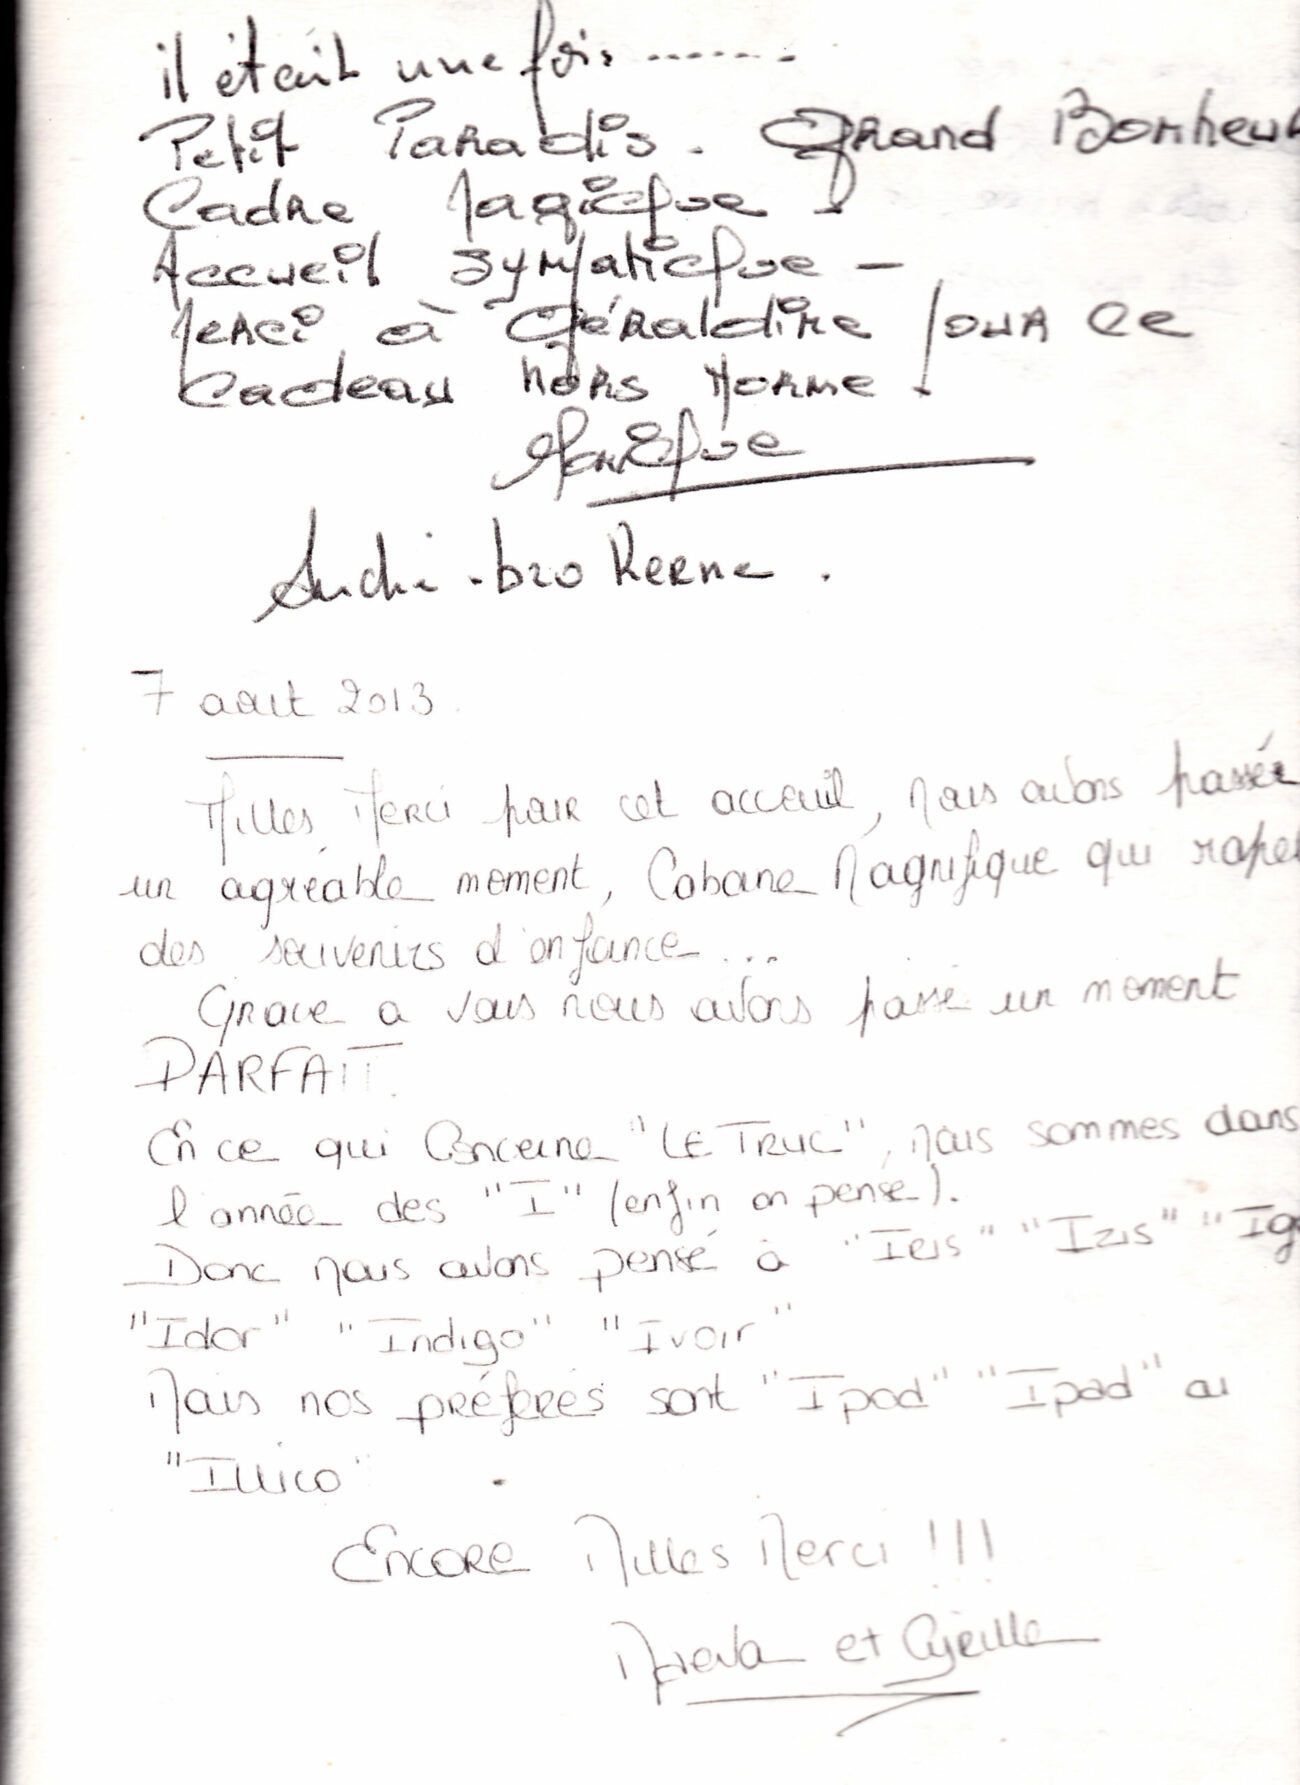 il était une fois .......
Petit Paradis. Grand Bonheur
Cadre Magique !
Accueil sympatique –
Merci à Géraldine pour ce
Cadeau hors norme !
Monique
bro Kerne .
7 aout 2013.
Milles Merci pour cet acceuil, Nous avons passée
un agréable moment, Cabane Magnifique qui rapel
des souvenirs d'enfance...
Grace a vous nous avons passé un moment
PARFAIT.
En ce qui Concerne "LE TRUC", nous sommes dans
l'année des "I" (enfin on pense).
Donc nous avons pensé à "Iris" "Izis" "Ig
"Idor" "Indigo" "Ivoir"
Mais nos préférés sont "Ipod" "Ipad" ou
"Illico"
Encore Milles Merci !!!
et